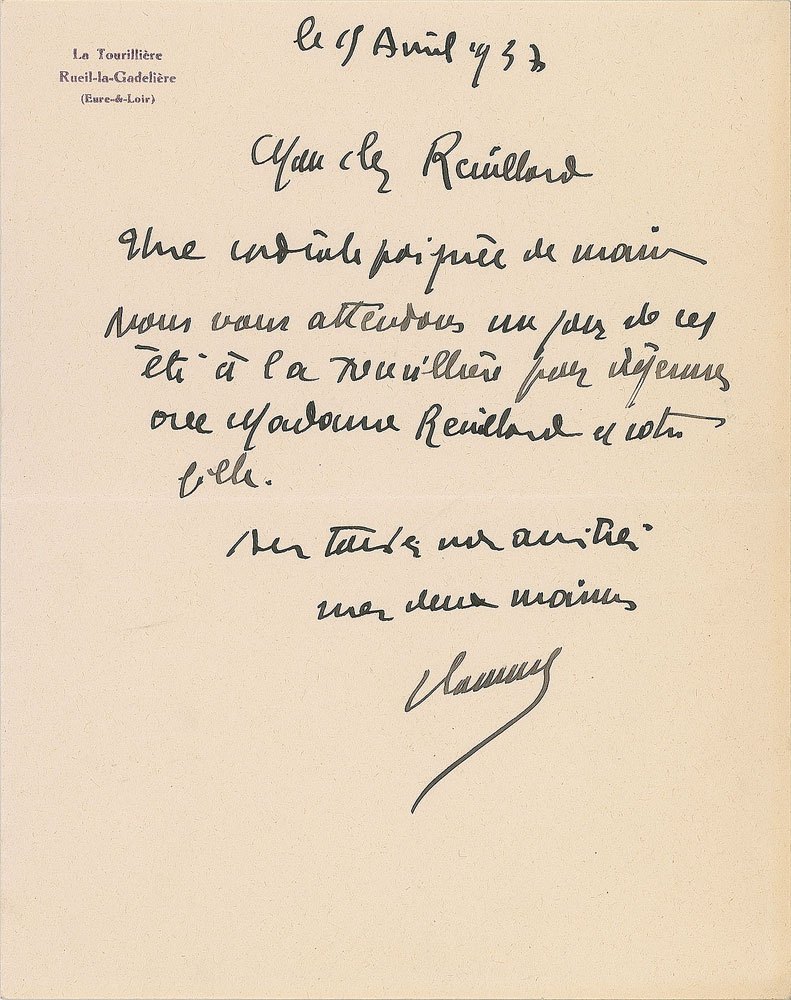 La Tourillière
Rueil-la-Gadelière
(Eure-&-Loir)
le 15 Avril 1937
Mon cher Reuillard
Une cordiale poignée de main
Nous vous attendons un jour de cet
été à la Tourillière pour déjeuner
avec Madame Reuillard et votre
fille.
toutes nos amitiés
mes deux mains
Vlaminck